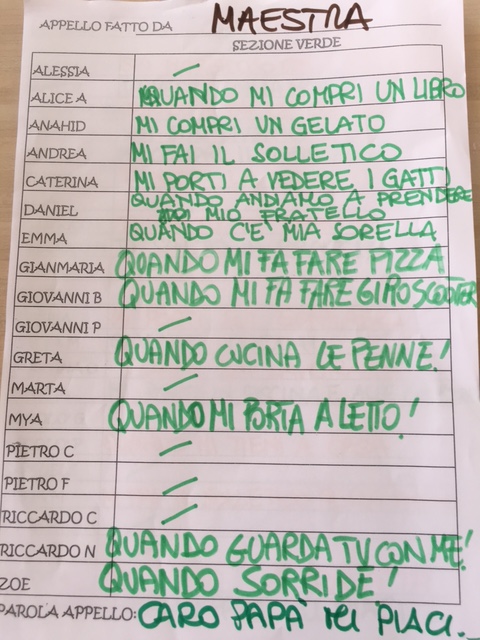 APPELLO FATTO DA MAESTRA
SEZIONE VERDE
ALESSIA —
ALICE A QUANDO MI COMPRI UN LIBRO
ANAHID MI COMPRI UN GELATO
ANDREA MI FAI IL SOLLETICO
CATERINA MI PORTI A VEDERE I GATTI
DANIEL QUANDO ANDIAMO A PRENDERE
MIO FRATELLO
EMMA QUANDO C'E' MIA SORELLA
GIANMARIA QUANDO MI FA FARE PIZZA
GIOVANNI B QUANDO MI FA FARE GIRO SCOOTER
GIOVANNI P —
GRETA QUANDO CUCINA LE PENNE!
MARTA —
MYA QUANDO MI PORTA A LETTO!
PIETRO C —
PIETRO F —
RICCARDO C —
RICCARDO N QUANDO GUARDA TV CON ME!
ZOE QUANDO SORRIDE!
PAROLA APPELLO: CARO PAPÀ MI PIACI...